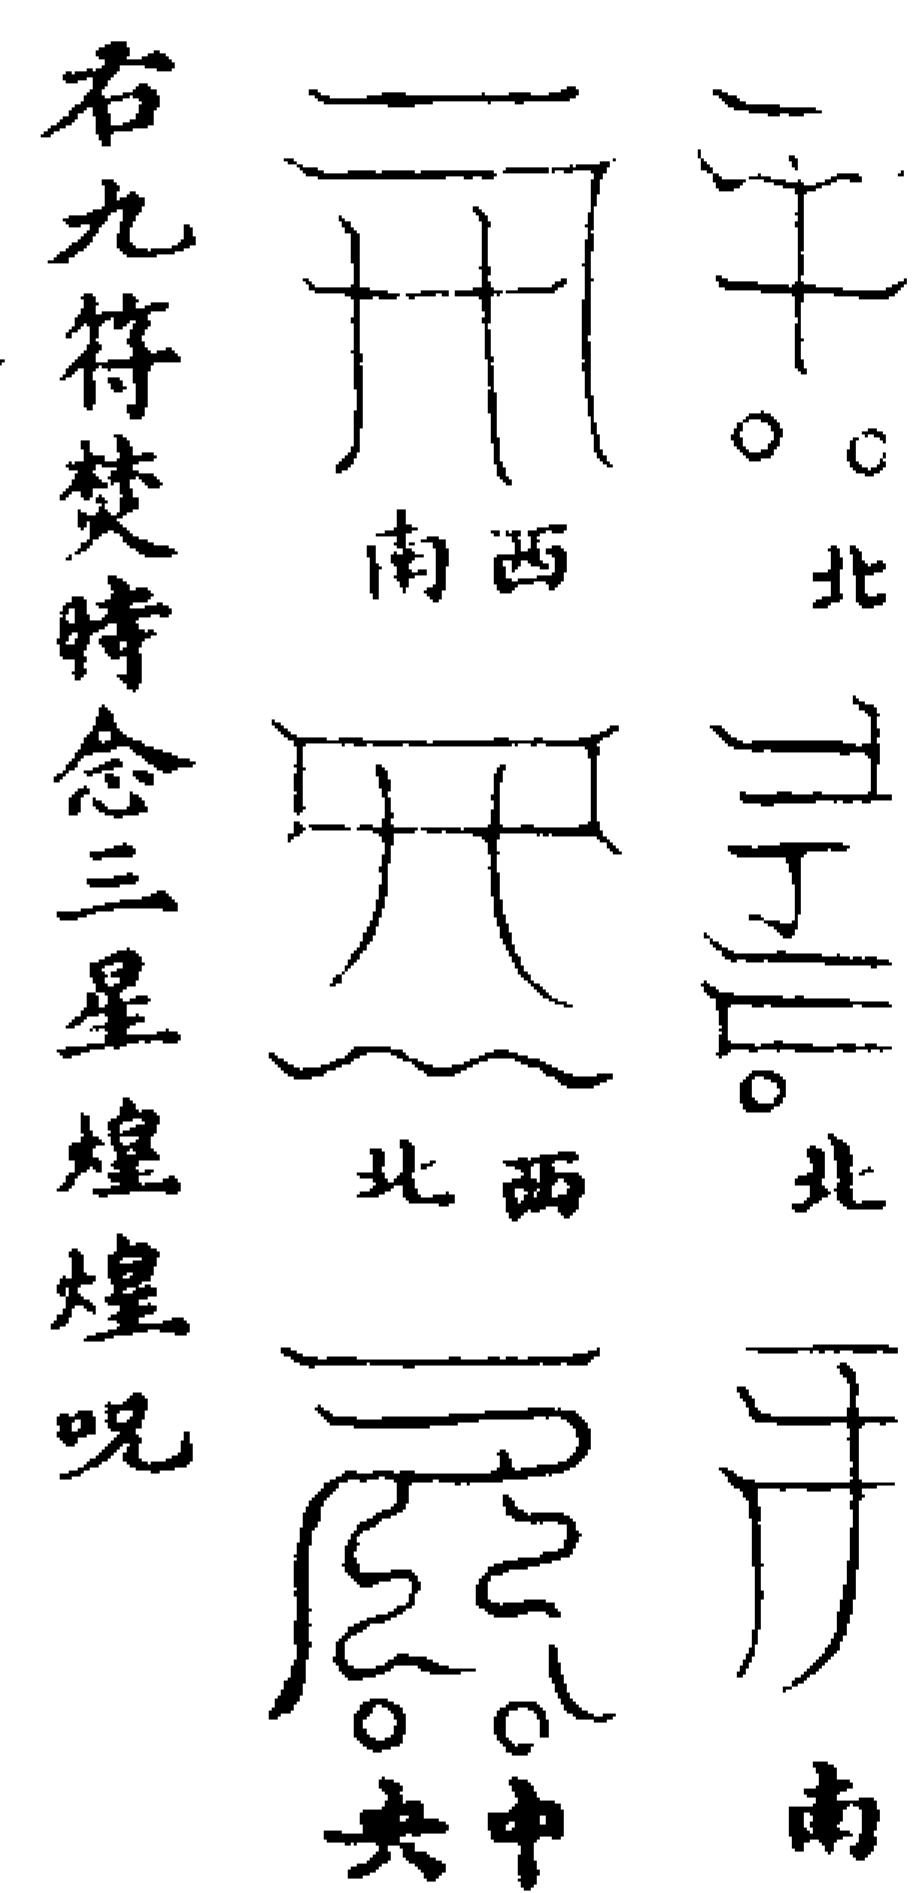 北
北
南
西南
西北
中央
右九符焚時念三星煌煌呪